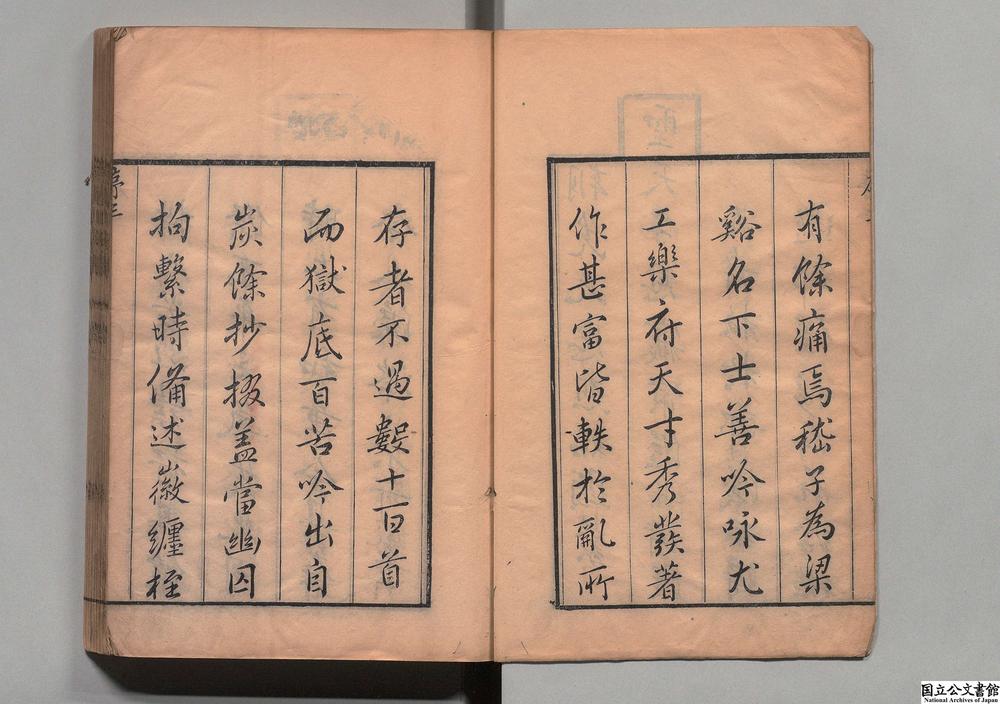 有餘痛焉嵇子為梁
谿名下士善吟咏尤
工樂府天才秀發著
作甚富皆軼於亂所
存者不過數十百首
而獄底百苦吟出自
炭餘抄掇盖當幽囚
拘繫時備述徽纆桎
序三
国立公文書館
National Archives of Japan